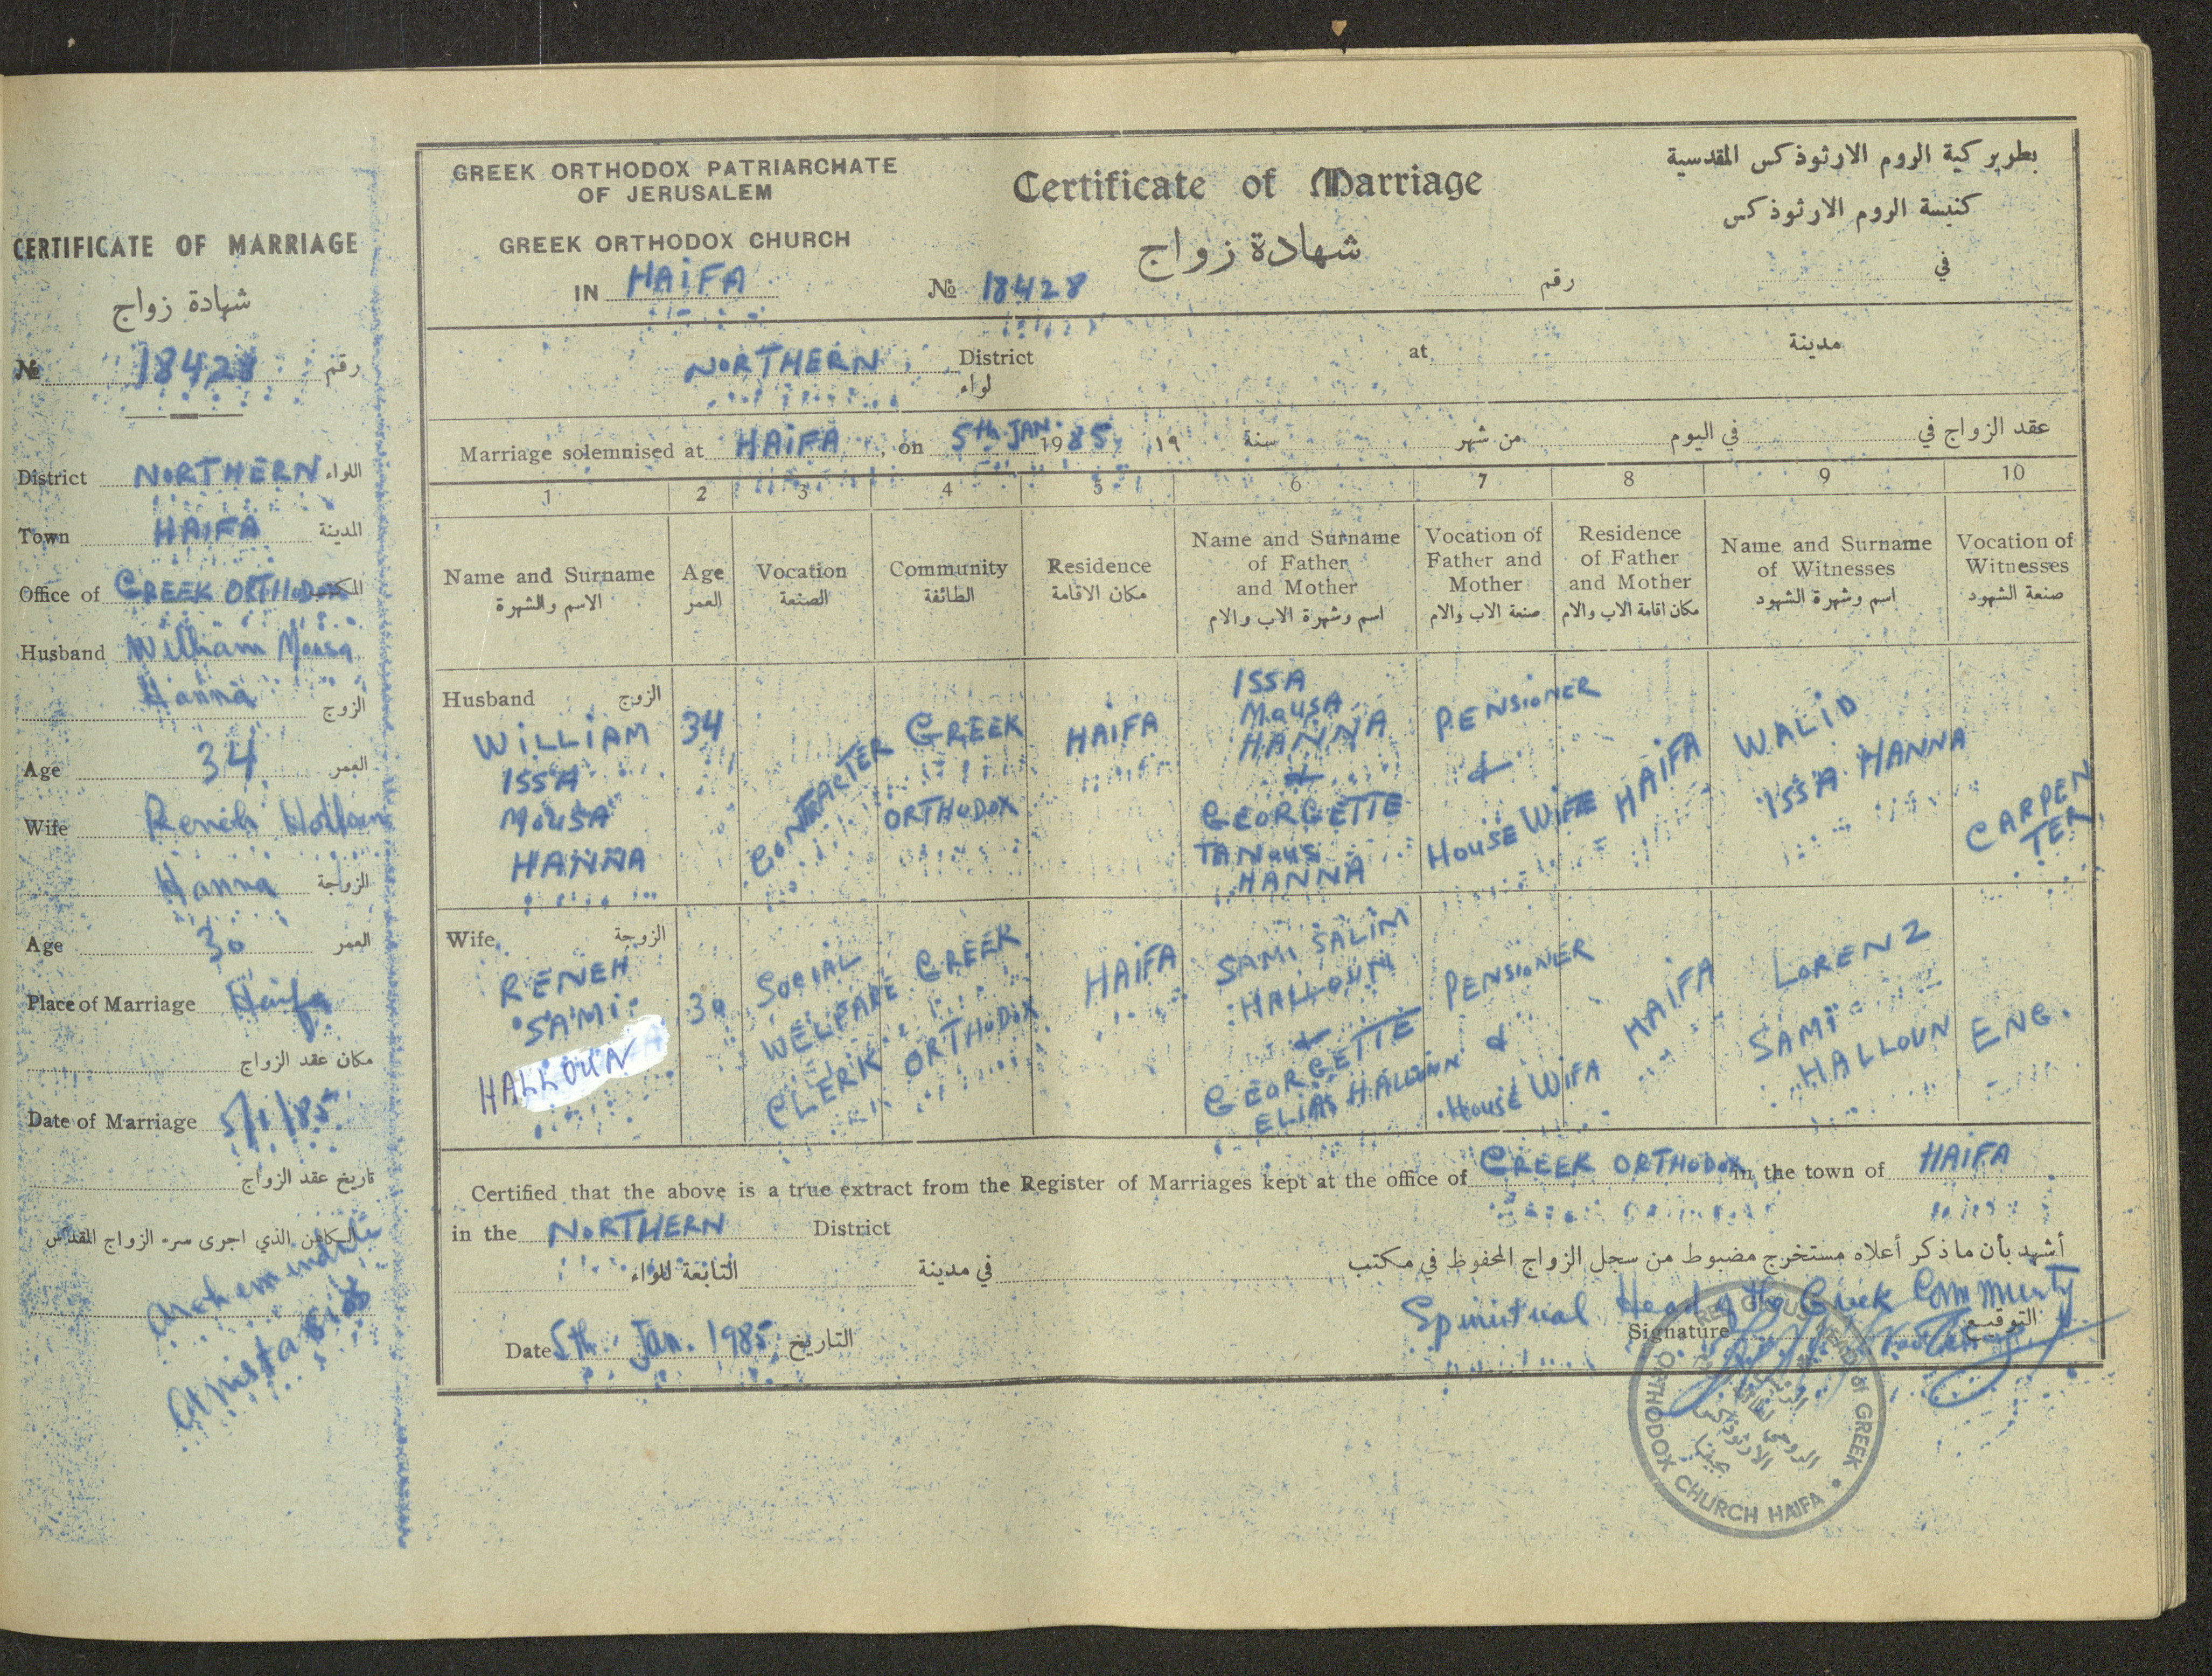 CERTIFICATE OF MARRIAGE
شهادة زواج
№ 18428 رقم
District NORTHERN اللواء
Town HAIFA المدينة
Office of GREEK ORTHODOX المكتب
Husband William Mousa
Hanna الزوج
Age 34 العمر
Wife Reneh Halloun
Hanna الزوجة
Age 30 العمر
Place of Marriage Haifa
مكان عقد الزواج
Date of Marriage 5/1/85
تاريخ عقد الزواج
الكاهن الذي اجرى سر الزواج المقدس
GREEK ORTHODOX PATRIARCHATE
OF JERUSALEM
GREEK ORTHODOX CHURCH
IN HAIFA
Certificate of Marriage
شهادة زواج
№ 18428 رقم
بطريركية الروم الارثوذكس المقدسية
كنيسة الروم الارثوذكس
في
NORTHERN District at مدينة
لواء
Marriage solemnised at HAIFA, on 5th JAN. 1985 ١٩ سنة من شهر في اليوم عقد الزواج في
1 2 3 4 5 6 7 8 9 10
Name and Surname
الاسم والشهرة
Age
العمر
Vocation
الصنعة
Community
الطائفة
Residence
مكان الاقامة
Name and Surname
of Father
and Mother
اسم وشهرة الاب والام
Vocation of
Father and
Mother
صنعة الاب والام
Residence
of Father
and Mother
مكان اقامة الاب والام
Name and Surname
of Witnesses
اسم وشهرة الشهود
Vocation of
Witnesses
صنعة الشهود
Husband الزوج
WILLIAM
ISSA
MOUSA
HANNA
34
CONTRACTER
GREEK
ORTHODOX
HAIFA
ISSA
MOUSA
HANNA
&
GEORGETTE
TANOUS
HANNA
PENSIONER
&
HOUSE WIFE
HAIFA
WALID
ISSA HANNA
CARPEN
TER
Wife الزوجة
RENEH
SAMI
HALLOUN
30
SOCIAL
WELFARE
CLERK
GREEK
ORTHODOX
HAIFA
SAMI SALIM
HALLOUN
&
GEORGETTE
ELIAS HALOUN
PENSIONIER
&
HOUSE WIFA
HAIFA
LORENZ
SAMI
HALLOUN
ENG.
Certified that the above is a true extract from the Register of Marriages kept at the office of GREEK ORTHODOX in the town of HAIFA
in the NORTHERN District
أشهد بأن ما ذكر أعلاه مستخرج مضبوط من سجل الزواج المحفوظ في مكتب
في مدينة التابعة للواء
Spiritual Head of the Greek Community
Date 5th. Jan. 1985 التاريخ
Signature التوقيع
RELIGIOUS HEAD of GREEK ORTHODOX CHURCH HAIFA